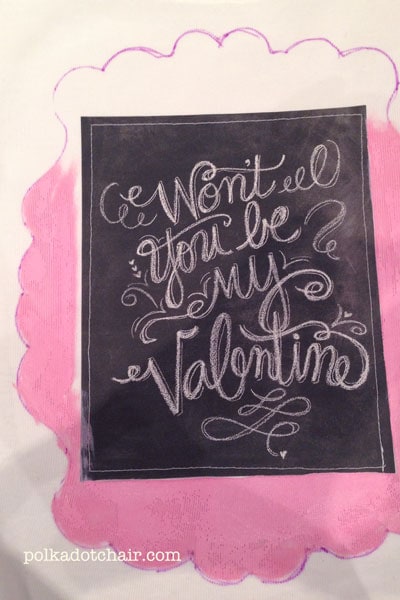 Won't
You be
my
Valentine
polkadotchair.com